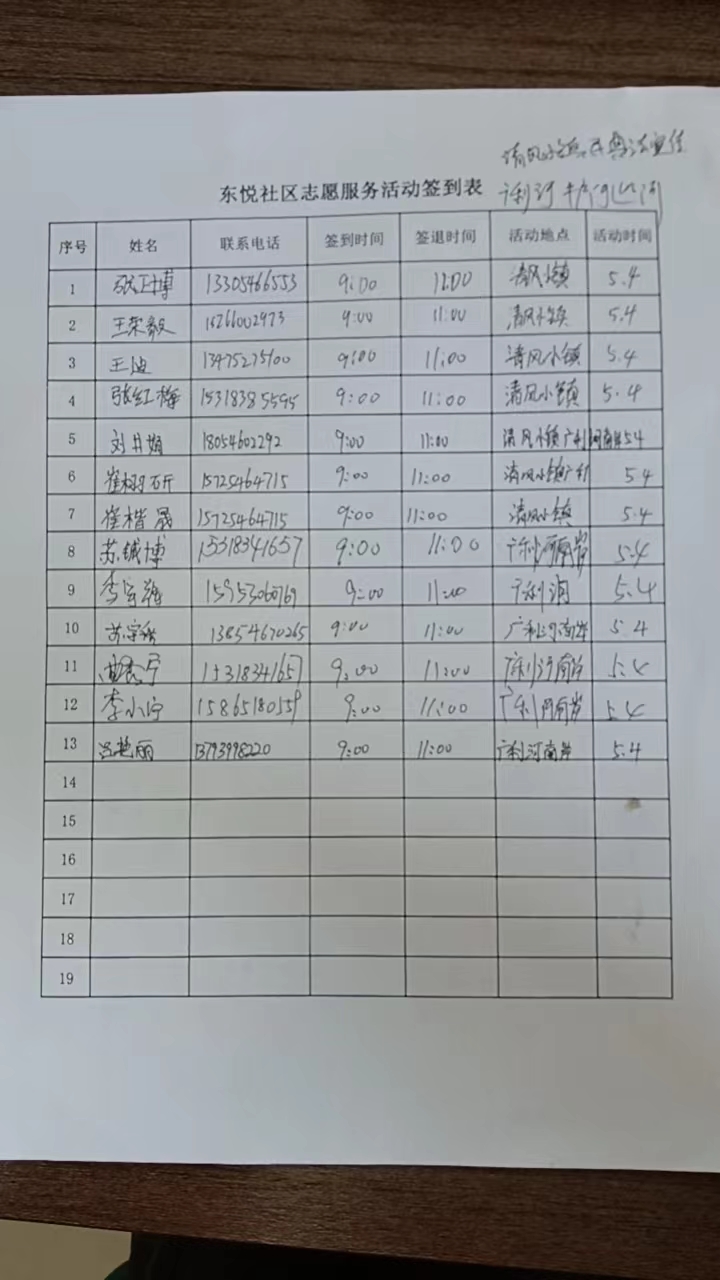 东悦社区志愿服务活动签到表
序号 姓名 联系电话 签到时间 签退时间 活动地点 活动时间
1 张正博 13305466553 9:00 11:00 清风小镇 5.4
2 王荣毅 15266002973 9:00 11:00 清风小镇 5.4
3 王迪 13475275100 9:00 11:00 清风小镇 5.4
4 张红梅 15318385595 9:00 11:00 清风小镇 5.4
5 刘井娟 18054602292 9:00 11:00 清风小镇广利河南岸 5.4
6 15725464715 9:00 11:00 清风小镇广利 5.4
7 崔楷晟 15725464715 9:00 11:00 清风小镇 5.4
8 苏铖博 15318341657 9:00 11:00 广利河南岸 5.4
9 15953060769 9:00 11:00 广利河 5.4
10 13854670265 9:00 11:00 广利河南岸 5.4
11 15318341657 9:00 11:00 广利河南岸 5.4
12 李小宁 15865180559 9:00 11:00 广利河南岸 5.4
13 吕艳丽 13793998220 9:00 11:00 广利河南岸 5.4
14
15
16
17
18
19